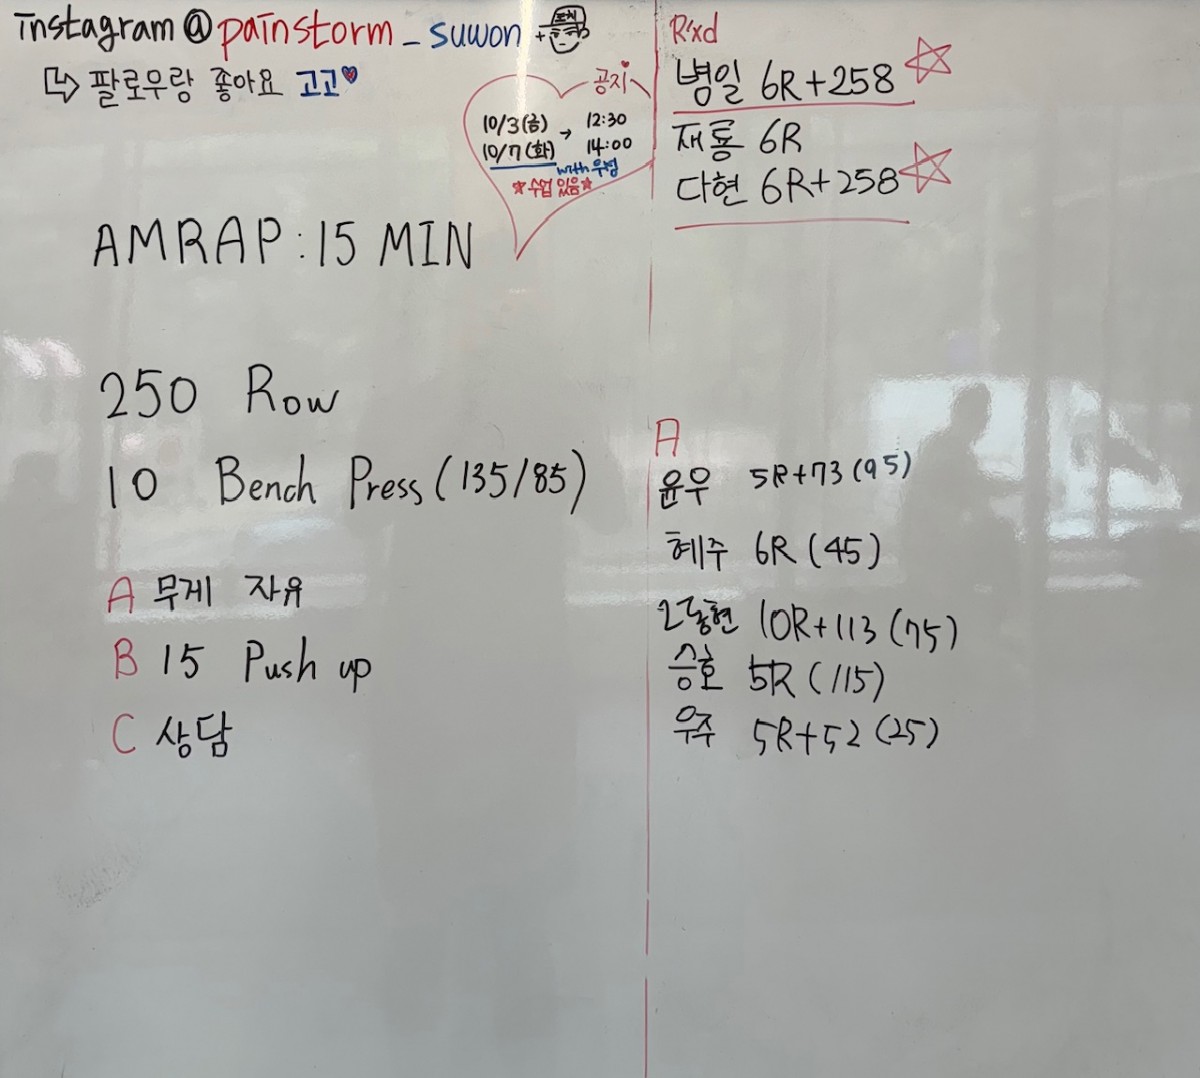 instagram@painstorm_suwon
팔로우랑 좋아요 고고
공지
10/3(금) → 12:30
10/7(화) 14:00
with 우성
수업 있음
AMRAP: 15 MIN
250 Row
10 Bench Press (135/85)
A 무게 자유
B 15 Push up
C 상담
R'xd
병일 6R+258
재룡 6R
다현 6R+258
A
윤우 5R+73 (95)
혜주 6R (45)
2동현 10R+113 (75)
승호 5R (115)
우주 5R+52 (25)